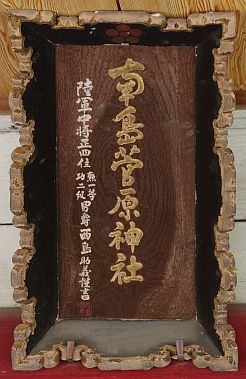 南島菅原神社
陸軍中将正四位
勲一等
功二級
男爵西島助義謹書